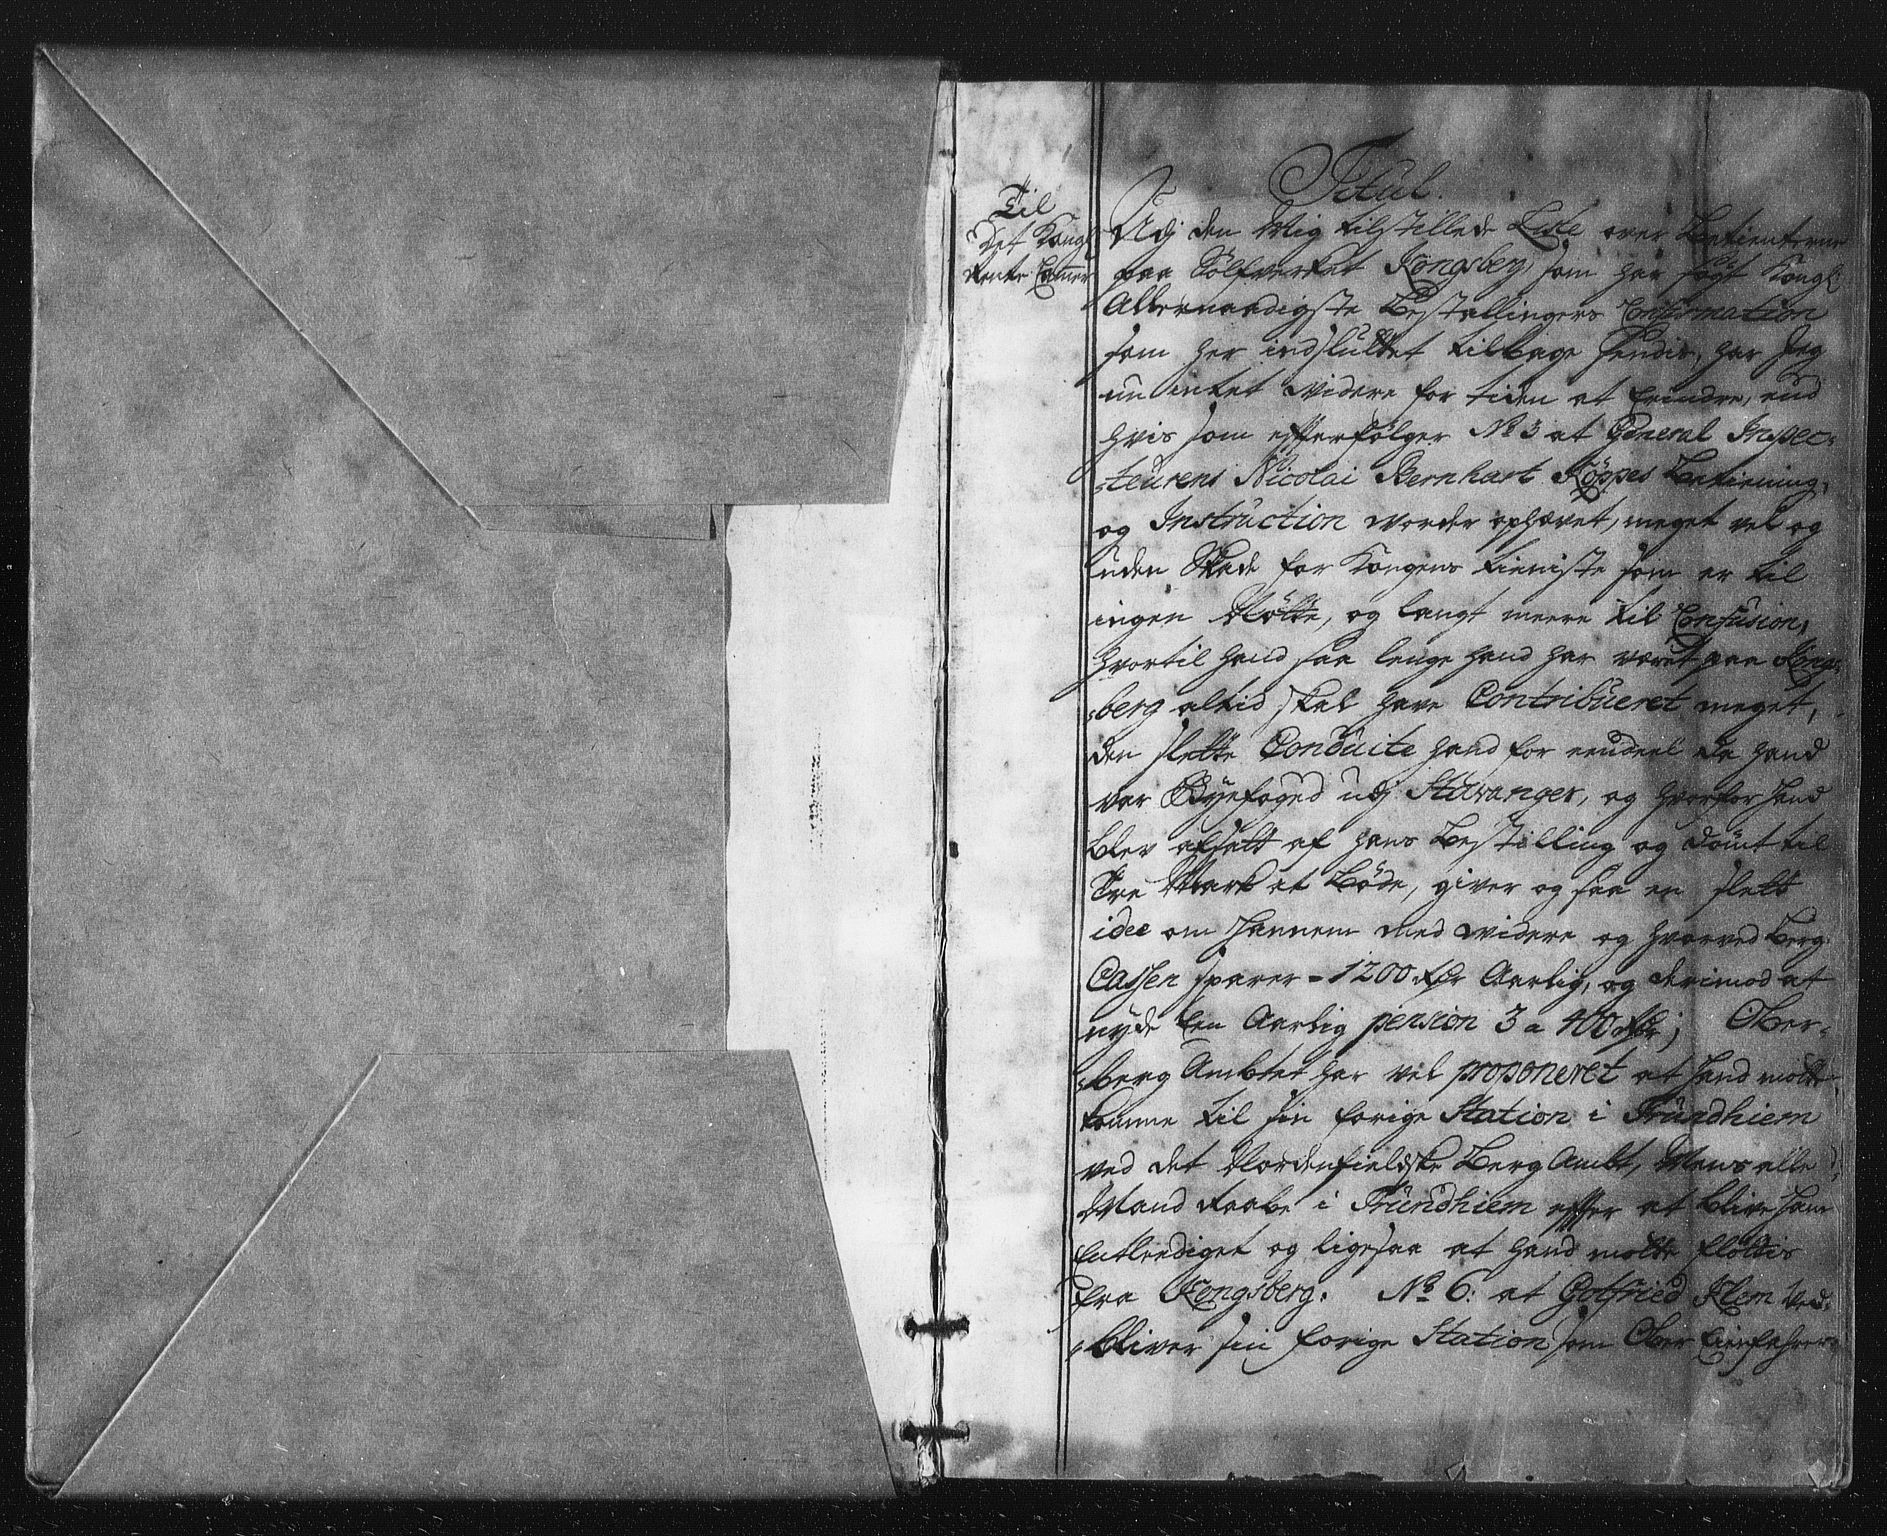 Titul.
Til
Det Kongl
Rente Cammer
Udj den Mig tilstillede Liste over Betienterne
paa Sölfverket Kongsberg som har søgt Kongl:
Allernaadigste Bestallingers Confirmation
som her indsluttet tilbage sendis, har Jeg
nu intet videre for tiden at Erindre, end
hvis som efterfølger No 3 at General Inspec-
-teurens Nicolai Bernhart Köppes Betiening,
og Instruction vorder ophævet, meget vel og
uden Skade for Kongens tieniste som er til
ingen Nötte, og langt meere til Confusion,
hvortil hand saa lenge hand har været paa Kongs-
-berg altid skal have Contribueret meget,
den slette Conduite hand for eendeel da hand
var Byefoged udj Stavanger, og hvorfor hand
blev afsatt af hans Bestilling og dömt til
Tre Mark at Böde, giver og saa en slett
idee om hannem med videre og hvorved Berg-
Cassen sparer - 1200 Rdr Aarlig, og derimod at
nyde Een Aarlig pension 3 a 400 Rdr; Ober-
-berg Ambtet har vel proponeret at hand motte
komme til sin forige Station i Trundhiem
ved det Nordenfieldske Berg Ambt, Mens alle
Mand Raabe i Trundhiem efter at blive ham
Entlediget og ligesaa at hand motte flöttis
fra Kongsberg. No 6: at Gotfried Klem Ved-
-bliver sin forige Station som Ober